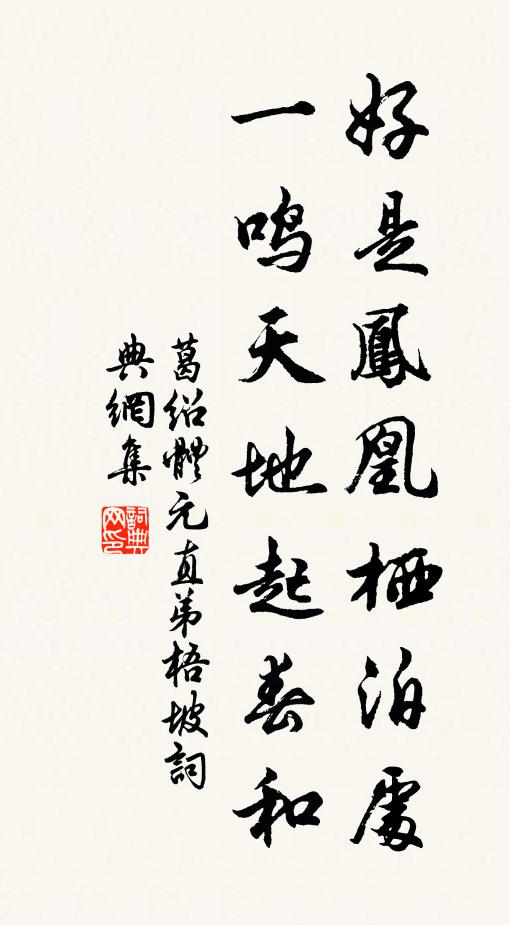 好是鳳凰栖泊處
一鸣天地起春和
葛绍體元直弟梧坡詞
典網集
詞典
网印